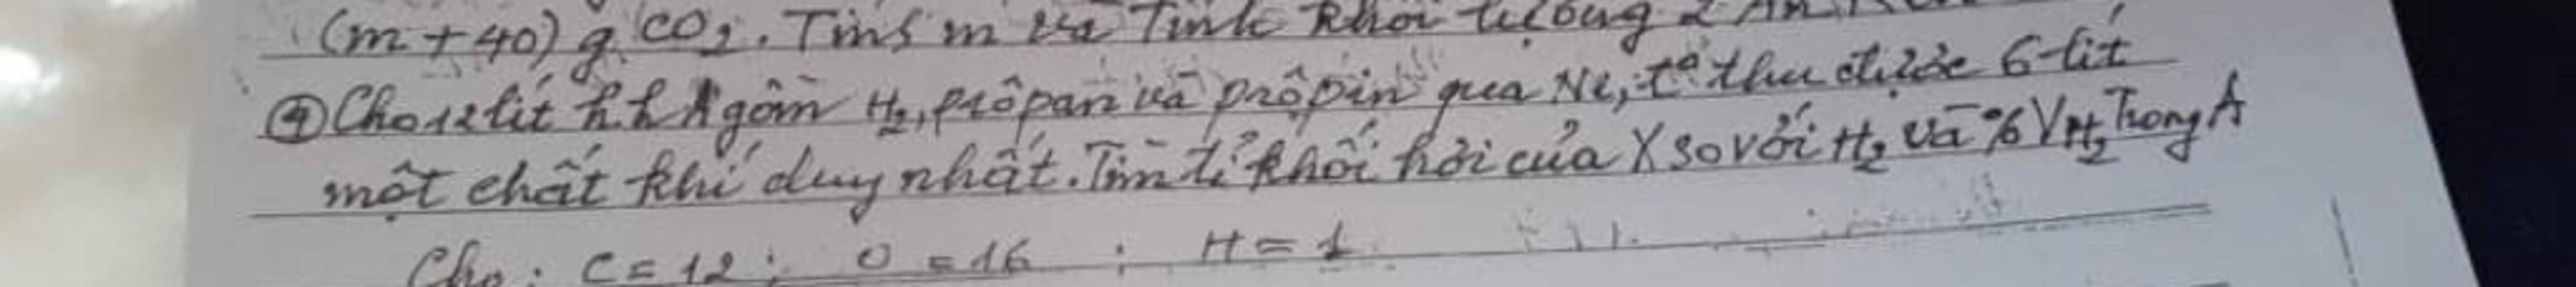 (m+40) g CO2. Tính m và Tính khối lượng 2
④ Cho 12 lít h.h A gồm H2, prôpan và prôpin qua Ni, t° thu được 6 lít
một chất khí duy nhất. Tìm tỉ khối hơi của X so với H2 và % VH2 Trong A
Cho: C = 12; O = 16 ; H = 1